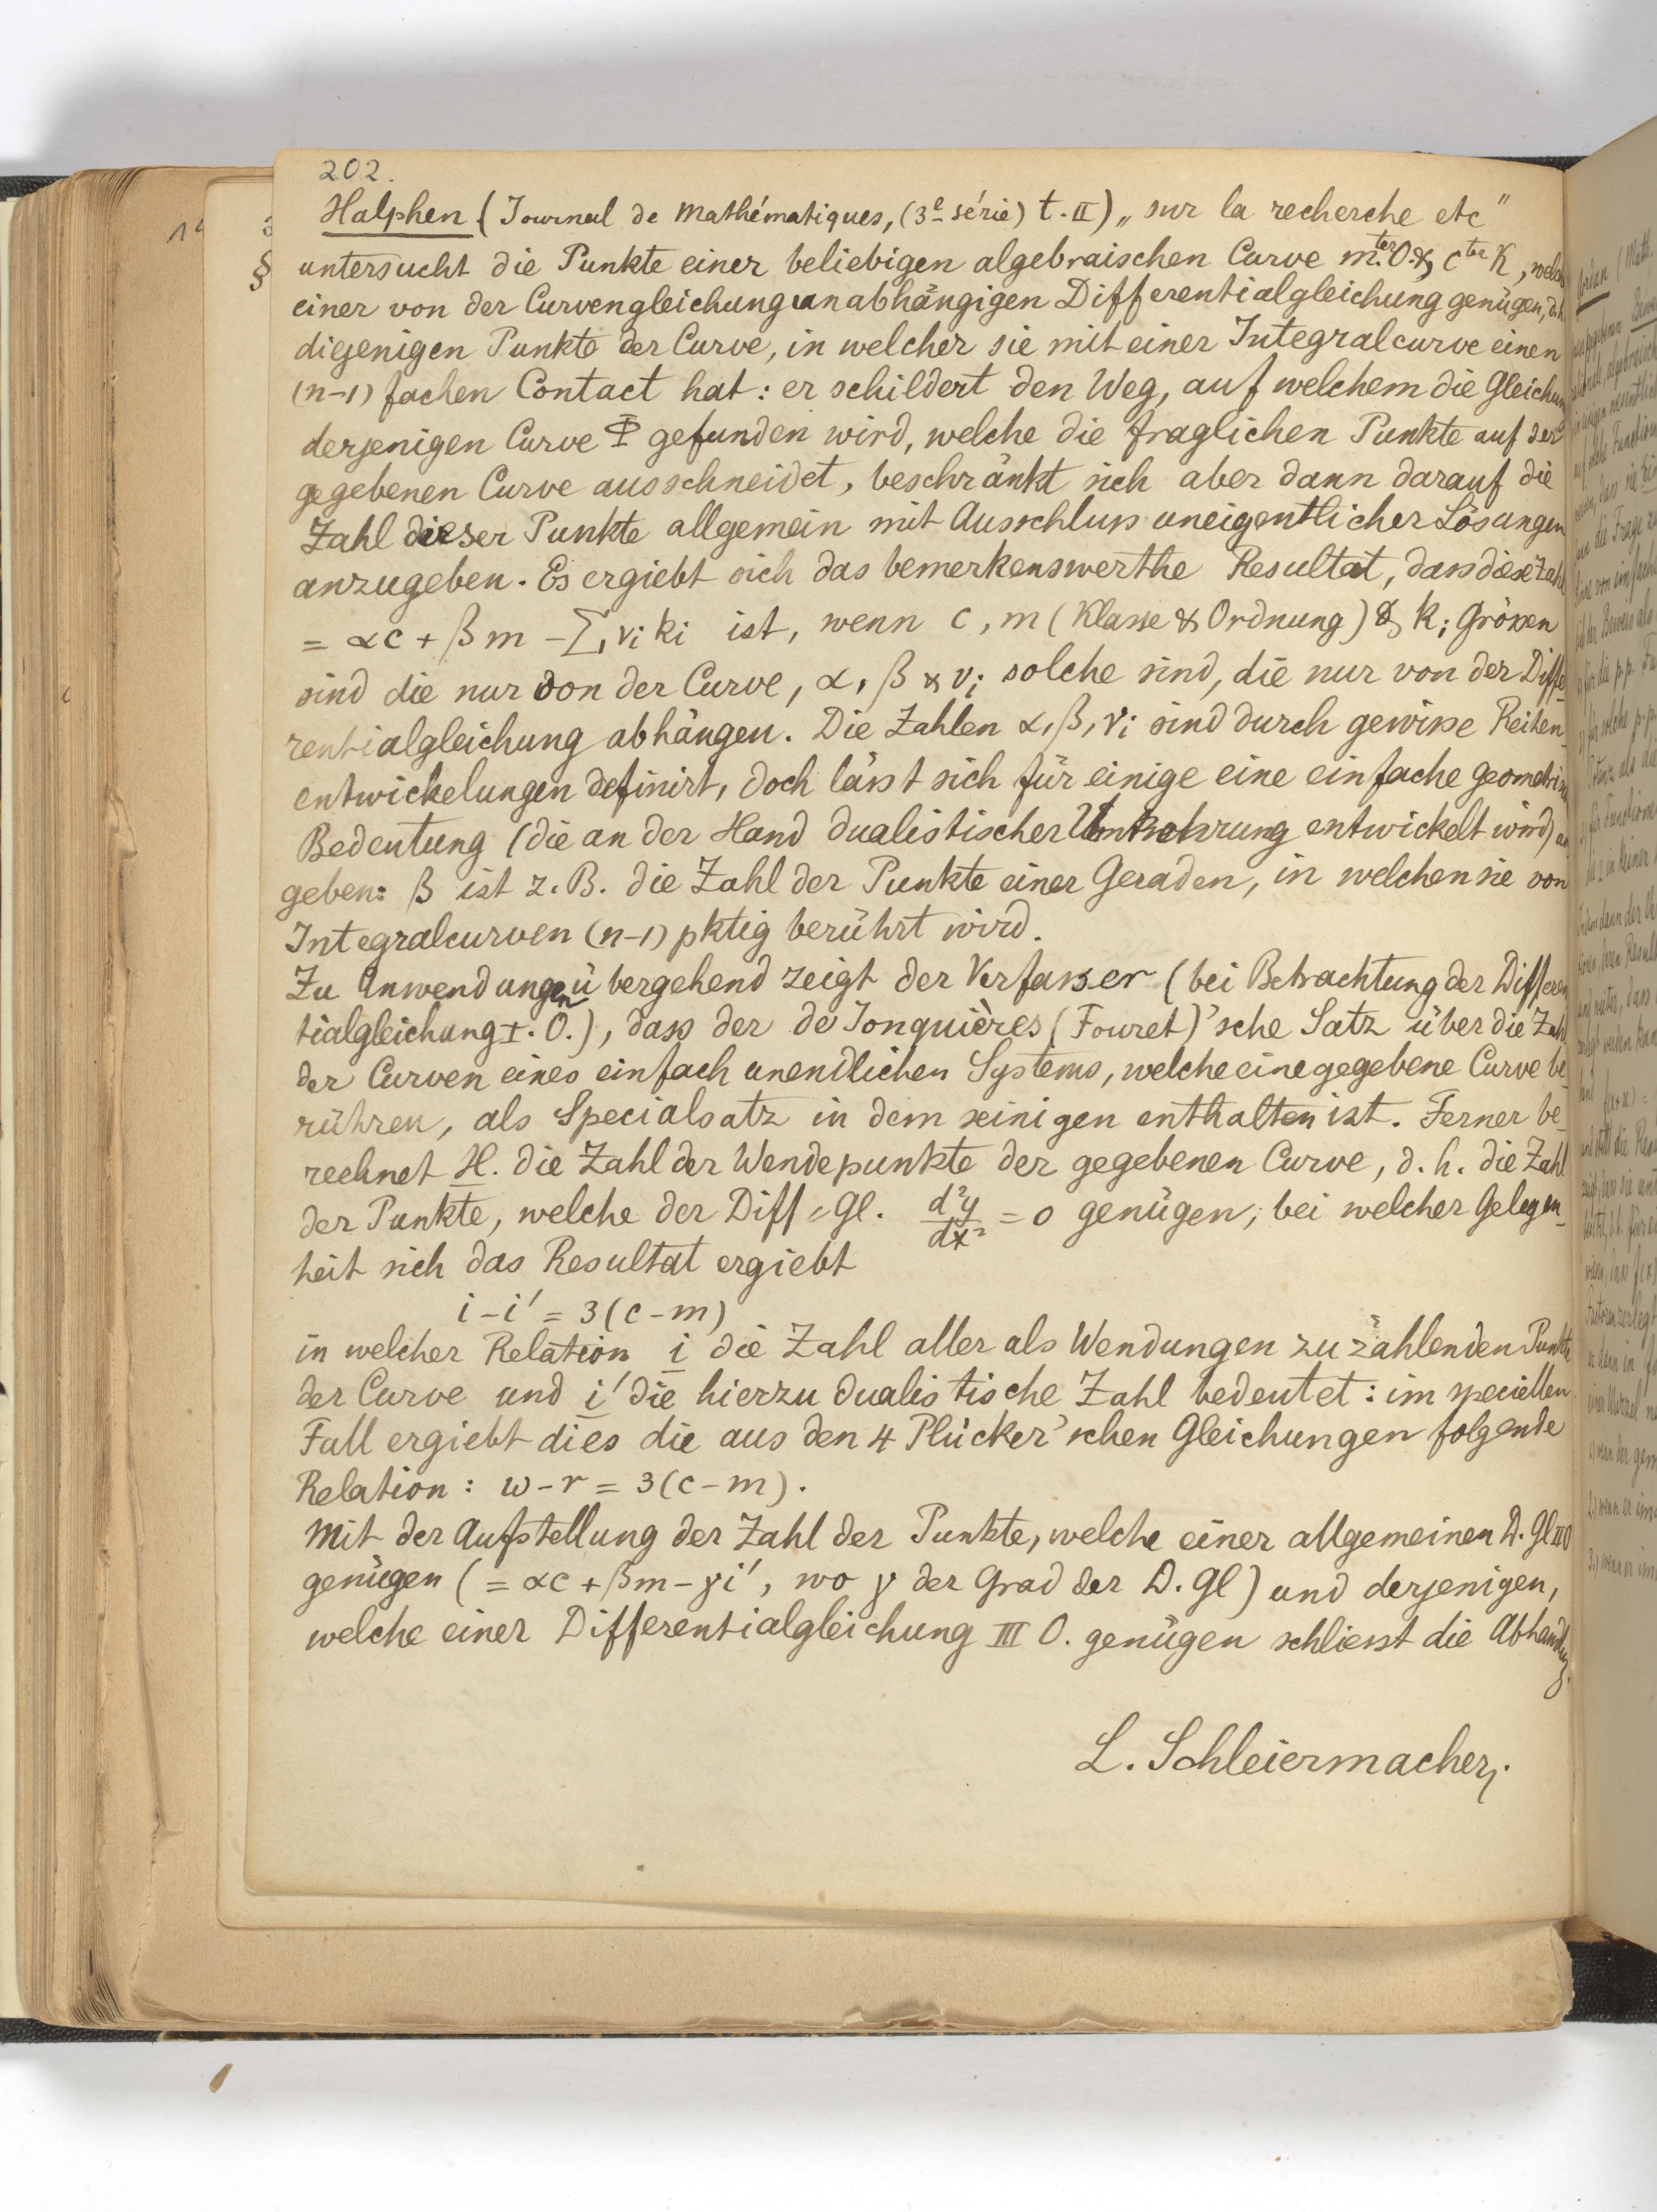 202.
Halphen (Journal de Mathématiques, (3e série) t. II) „sur la recherche etc"
untersucht die Punkte einer beliebigen algebraischen Curve mter O. & cter K, welch
einer von der Curvengleichung unabhängigen Differentialgleichung genügen, d.h.
diejenigen Punkte der Curve, in welcher sie mit einer Integralcurve einen
(n-1) fachen Contact hat: er schildert den Weg, auf welchem die Gleichun
derjenigen Curve Φ gefunden wird, welche die fraglichen Punkte auf der
gegebenen Curve ausschneidet, beschränkt sich aber dann darauf die
Zahl dieser Punkte allgemein mit Ausschluss uneigentlicher Lösungen
anzugeben. Es ergiebt sich das bemerkenswerthe Resultat, dass diese Zahl
= αc + βm - Σ νi ki ist, wenn c, m (Klasse & Ordnung) & ki Grössen
sind die nur von der Curve, α, β & νi solche sind, die nur von der Diffe
rentialgleichung abhängen. Die Zahlen α, β, νi sind durch gewisse Reihen-
entwickelungen definirt, doch lässt sich für einige eine einfache geometrisch
Bedeutung (die an der Hand dualistischer Umkehrung entwickelt wird) an
geben: β ist z. B. die Zahl der Punkte einer Geraden, in welchen sie von
Integralcurven (n-1) pktig berührt wird.
Zu Anwendungen übergehend zeigt der Verfasser (bei Betrachtung der Differen
tialgleichung I. O.), dass der de Jonquières (Fouret)'sche Satz über die Zahl
der Curven eines einfach unendlichen Systems, welche eine gegebene Curve be-
rühren, als Specialsatz in dem seinigen enthalten ist. Ferner be-
rechnet H. die Zahl der Wendepunkte der gegebenen Curve, d. h. die Zahl
der Punkte, welche der Diff.-Gl. d²y/dx² = 0 genügen, bei welcher Gelegen-
heit sich das Resultat ergiebt
i - i' = 3(c - m)
in welcher Relation i die Zahl aller als Wendungen zu zählenden Punkte
der Curve und i' die hierzu dualistische Zahl bedeutet: im speciellen
Fall ergiebt dies die aus den 4 Plücker'schen Gleichungen folgende
Relation: w - r = 3(c - m).
Mit der Aufstellung der Zahl der Punkte, welche einer allgemeinen D. Gl II O
genügen (= αc + βm - γi', wo γ der Grad der D. Gl) und derjenigen,
welche einer Differentialgleichung III O. genügen schliesst die Abhandlg.
L. Schleiermacher.